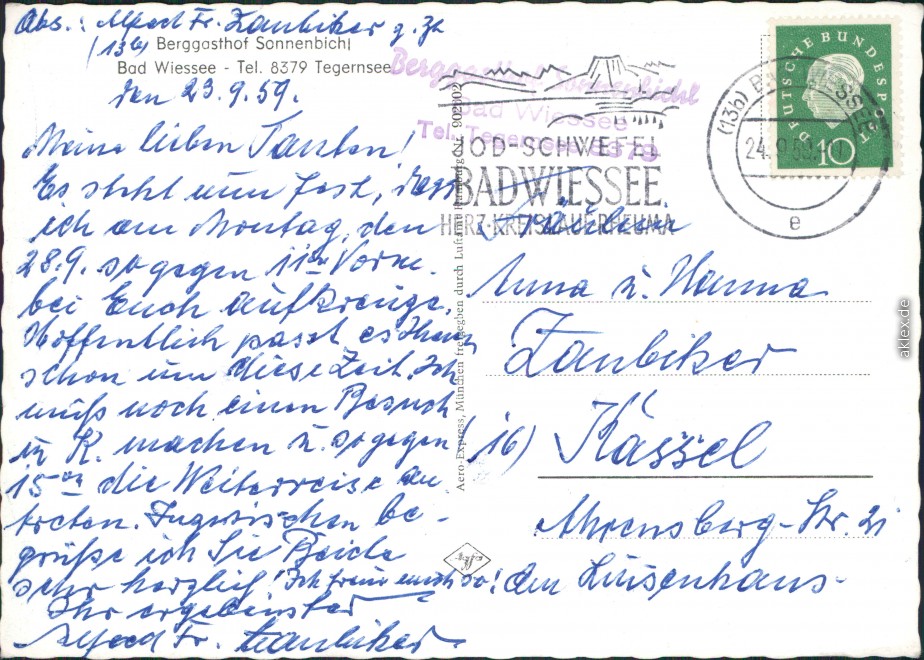 Abs.: Alfred Fr. Zaubiker z. Zt.
(13b) Berggasthof Sonnenbichl
Bad Wiessee - Tel. 8379 Tegernsee
den 23.9.59.
Meine lieben Tanten!
Es steht nun fest, dass
ich am Montag, den
28.9. so gegen 11 Uhr Vorm.
bei Euch aufkreuze.
Hoffentlich passt es Ihnen
schon um diese Zeit. Ich
muß noch einen Besuch
in K. machen u. so gegen
15 Uhr die Weiterreise an
treten. Inzwischen be-
grüße ich Sie Beide
sehr herzlich! Ich freue mich so!
Ihr ergebenster
Alfred Fr. Zaubiker
Berggasthof Sonnenbichl
Bad Wiessee
Tel. Tegernsee 8379
JOD-SCHWEFEL
BAD WIESSEE
HERZ-KREISLAUF-RHEUMA
(13b) BAD WIESSEE
24.9.59
e
DEUTSCHE BUNDESPOST
10
Aero-Express, München freigegeben durch Luftamt Hamburg Nr. 902602
Anna u. Hanna
Zaubiker
(16) Kassel
Ahrensberg-Str. 21
den Luisenhaus-
aklex.de